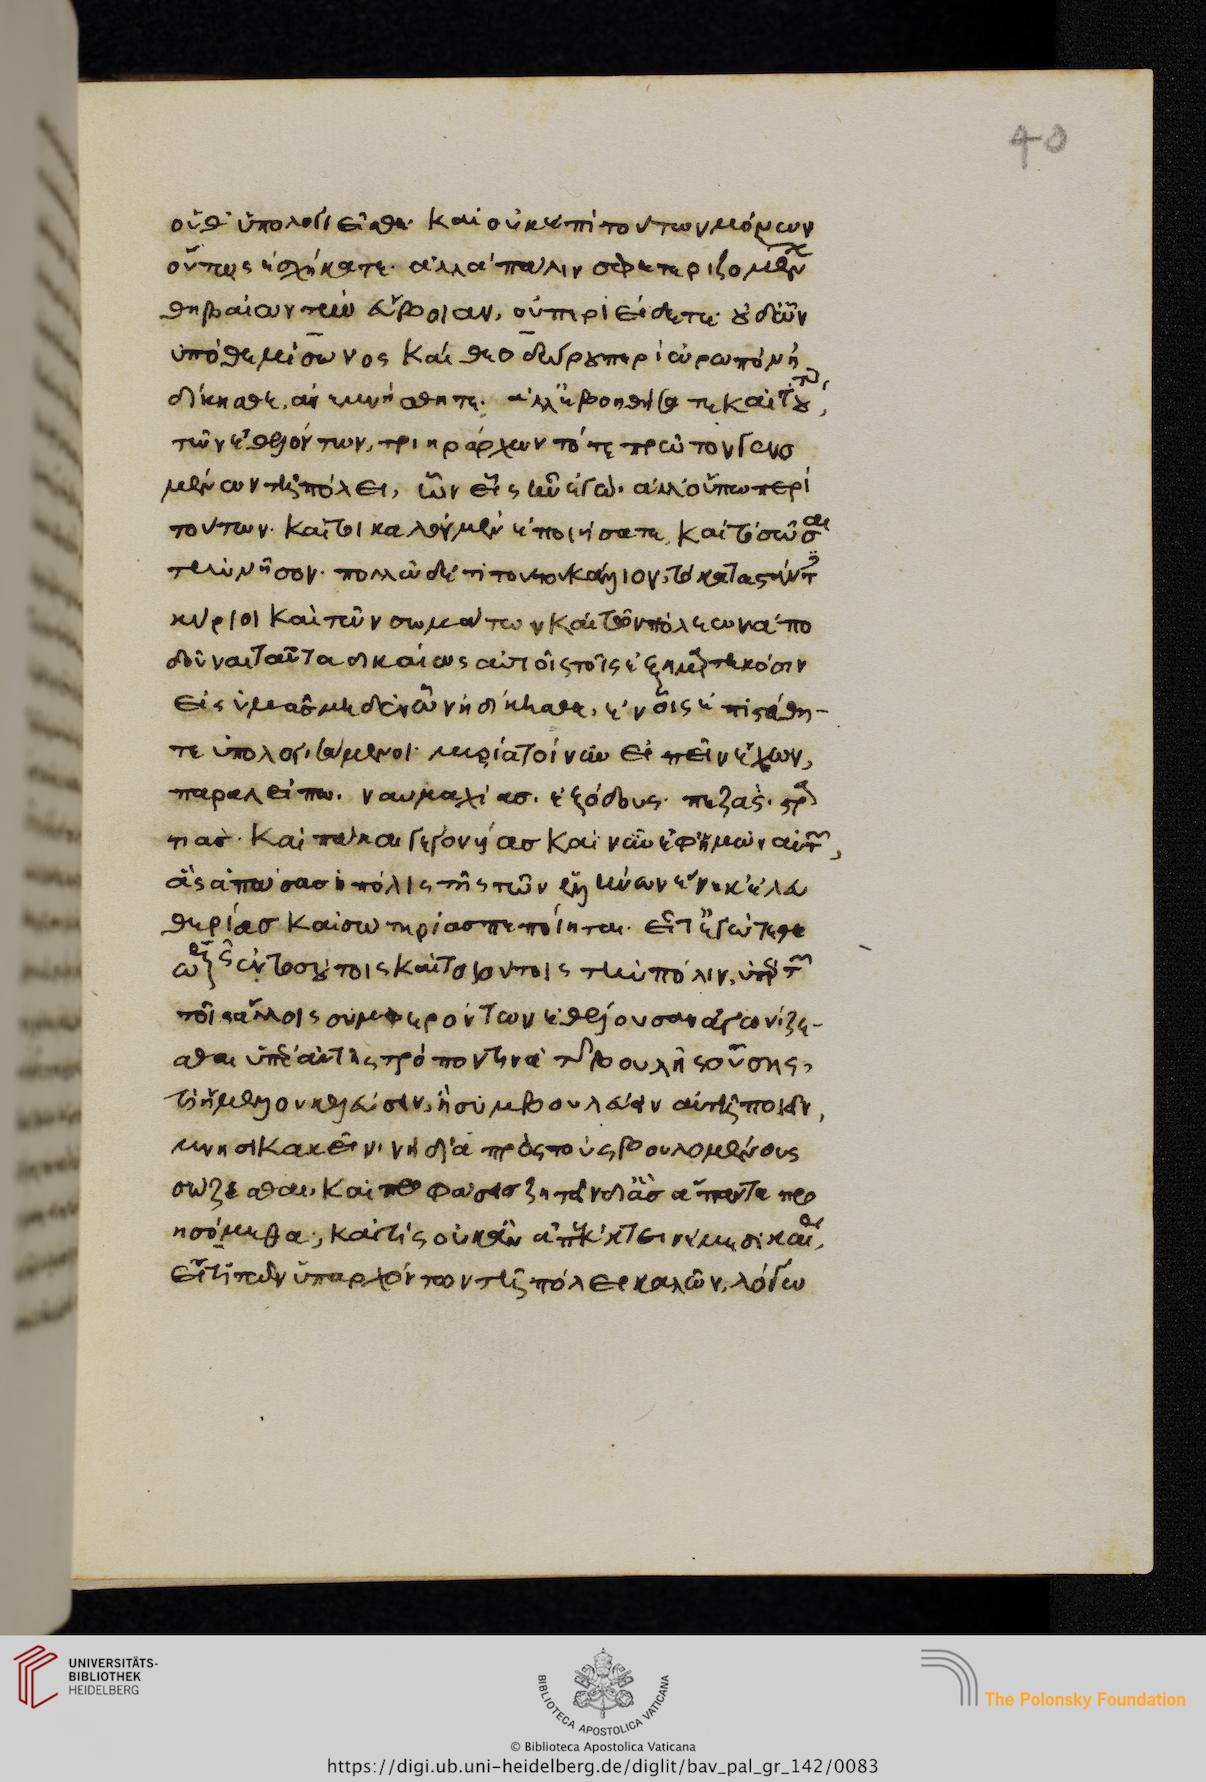 οὔθ' ὑπολογίσασθε. καὶ οὐκ ἐπὶ τούτων μόνων
οὕτως ἐσχήκατε. ἀλλὰ πάλιν σφετεριζομένων
θηβαίων τὴν εὔβοιαν, οὐ περιείδετε. οὐδ' ὧν
ὑπὸ θεμίσωνος καὶ θεοδώρου περὶ ὠρωπὸν ἠ
δίκησθε, ἀνεμνήσθητε. ἀλλ' ἐβοηθήσατε καὶ τούτοις,
τῶν ἐθελόντων, τριηράρχων τότε πρῶτον γενο
μένων τῇ πόλει, ὧν εἷς ἦν ἐγώ. ἀλλ' οὔπω περὶ
τούτων. καίτοι καλὸν μὲν ἐποιήσατε, καὶ τὸ σῶσαι
τὴν νῆσον. πολλῷ δ' ἔτι τούτου κάλλιον, τὸ καταστάντες
κύριοι καὶ τῶν σωμάτων καὶ τῶν πόλεων ἀπο
δοῦναι ταῦτα δικαίως αὐτοῖς τοῖς ἐξημαρτηκόσιν
εἰς ὑμᾶς μηδὲν ὧν ἠδίκησθε, ἐν οἷς ἐπιστεύθη-
τε ὑπολογισάμενοι. μυρία τοίνυν εἰπεῖν ἔχων,
παραλείπω. ναυμαχίας. ἐξόδους. πεζάς. στρα
τιάς. καὶ πάλαι γεγονυίας καὶ νῦν ἐφ' ἡμῶν αὐτῶν,
ἃς ἁπάσας ἡ πόλις τῆς τῶν ἑλλήνων ἕνεκ' ἐλευ
θερίας καὶ σωτηρίας πεποίηται. εἶτ' ἐγὼ τεθε
ωρηκὼς ἐν τοσούτοις καὶ τοιούτοις τὴν πόλιν, ὑπὲρ τῶν
τοῖς ἄλλοις συμφερόντων ἐθέλουσαν ἀγωνίζε-
σθαι ὑπὲρ αὐτῆς τρόπον τινὰ τῆς βουλῆς οὔσης,
τί ἤμελλον κελεύσειν, ἢ συμβουλεύειν αὐτῇ ποιεῖν,
μνησικακεῖν. νὴ δία πρὸς τοὺς βουλομένους
σώζεσθαι, καὶ προφάσεις ζητεῖν δι' ἃς ἅπαντα προ
ησόμεθα, καὶ τίς οὐκ ἂν ἀπέκτεινέ με δικαίως,
εἴ τι τῶν ὑπαρχόντων τῇ πόλει καλῶν, λόγω
40
UNIVERSITÄTS-
BIBLIOTHEK
HEIDELBERG
BIBLIOTECA APOSTOLICA VATICANA
The Polonsky Foundation
© Biblioteca Apostolica Vaticana
https://digi.ub.uni-heidelberg.de/diglit/bav_pal_gr_142/0083